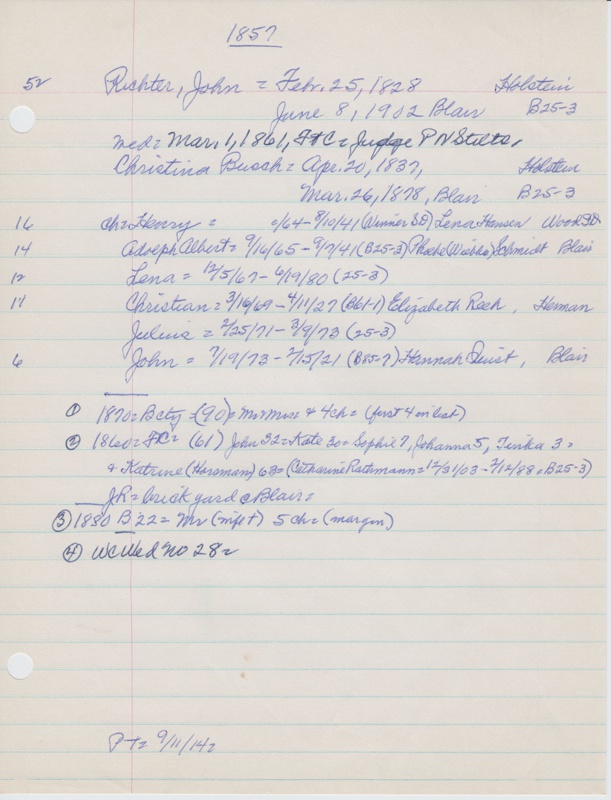 1857
52 Richter, John = Febr. 25, 1828 Holstein
June 8, 1902 Blair B25-3
wed = Mar. 1, 1861, FtC = Judge P N Stilts,
Christina Busch = Apr. 20, 1837, Holstein
Mar. 26, 1878, Blair B25-3
16 ch = Henry = /64 - 8/10/41 (Winner SD) Lena Hansen Wood SD
14 Adolph Albert = 9/16/65 - 9/7/41 (B25-3) Phoebe (Wiebke) Schmidt Blair
12 Lena = 12/5/67 - 6/19/80 (25-3)
11 Christian = 3/16/69 - 4/11/27 (B61-1) Elizabeth Rech, Herman
Julius = 2/25/71 - 3/9/73 (25-3)
6 John = 7/19/73 - 2/15/21 (B85-7) Hannah Quist, Blair
① 1870 = Bcty = (90) = Mr Mrs & 4 ch = (first 4 in list)
② 1860 = FtC = (61) John 32 = Kate 30 = Sophie 7, Johanna 5, 3 =
& Katrine (Horsmann) 63 = (Catharine Ratsmann = 12/31/03 - 2/12/88 = B25-3)
JR = brick yard c Blair =
③ 1880 B 22 = Mr (mfgt) 5 ch = (margin)
④ WC Wed No 28 =
PT = 9/11/14 =